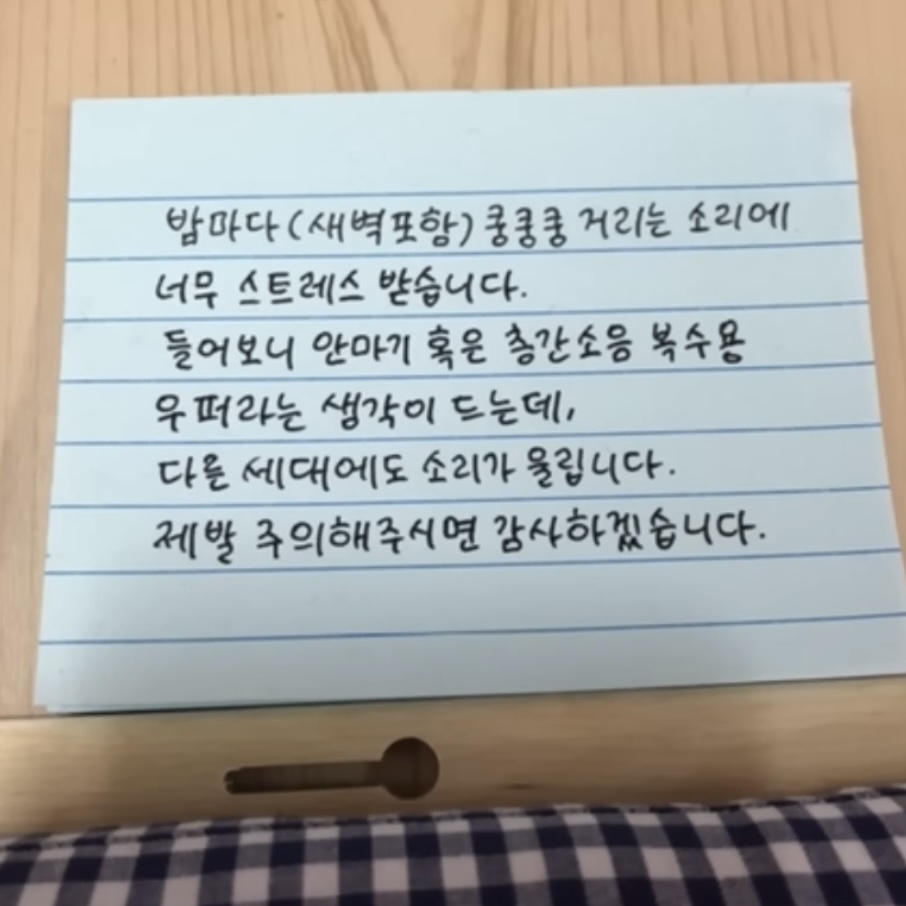 밤마다(새벽포함) 쿵쿵쿵 거리는 소리에
너무 스트레스 받습니다.
들어보니 안마기 혹은 층간소음 복수용
우퍼라는 생각이 드는데,
다른 세대에도 소리가 울립니다.
제발 주의해주시면 감사하겠습니다.